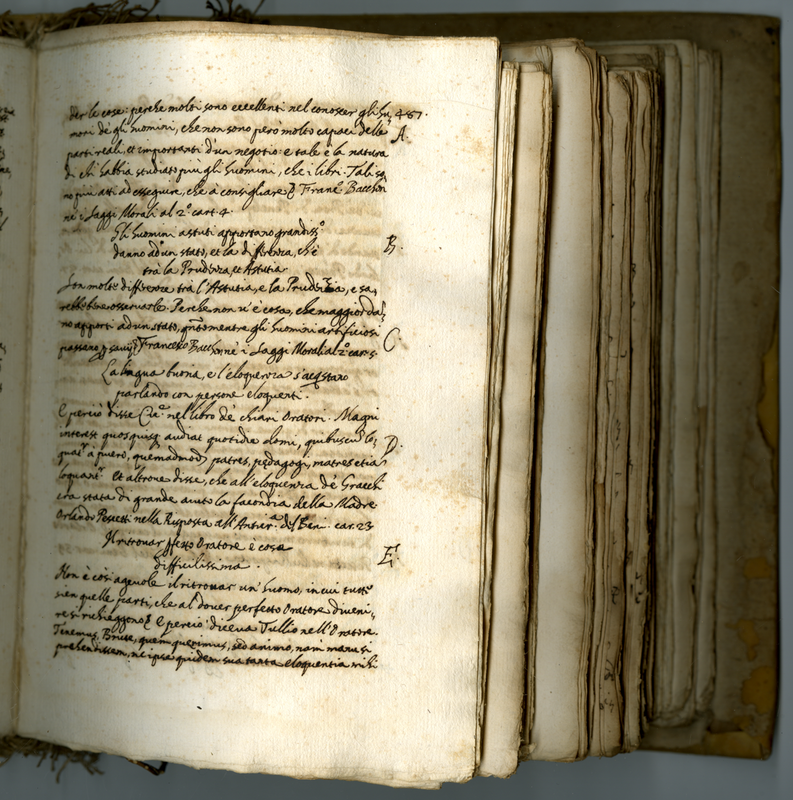 der le cose: perche molti sono eccellenti nel conoscer gli hu, 487.
mori de gli huomini, che non sono però molto capaci delle A.
parti reali, et importanti d'un negotio: e tale è la natura
di chi habbia studiato più gli huomini, che i libri. Tali so,
no più atti ad esseguire, che à consigliare Franc.º Bacchon
ne i Saggi Morali al 2º cart. 4.
Gli huomini astuti apportano grandiss.º
danno ad un stato, et la differenza, ch'è B.
trà la Prudenza, et Astutia.
Son molto differenze trà l'Astutia, e la Prudenza, e sa,
rebbe bene osservarle. Perche non vi è cosa, che maggior dan,
no apporti ad un stato, qñto mentre gli huomini artificiosi C.
passano p savij. Francesco Bacchon nè i Saggi Morali al 2º car. 5.
La lingua buona, e l'eloquenza s'acqstano
parlando con persone eloquenti.
E perciò disse Cic.º nel libro de chiari Oratori. Magni
interest quos quisq audiat quotidie domi, quibuscũ lo, D.
quat.r à puero, quemadmod patres, pedagogi, matres etiã
loquant.r Et altrove disse, che all'eloquenza de Gracchi
era stata di grande aiuto la facondia della Madre
Orlando Pescetti nella Risposta all'Anticr.a del Beni. car. 23
Il ritrovar pfetto Oratore è cosa E.
difficilissima.
Non è così agevole il ritrovar un' huomo, in cui tutte
sien quelle parti, che al dover perfetto Oratore diveni,
re si richieggono. E perciò diceva Tullio nell'Oratore.
Tenemus, Brute, quem querimus, sed animo, nam manu si
prehendissem, ne ipse quidem sua tanta eloquentia mihi